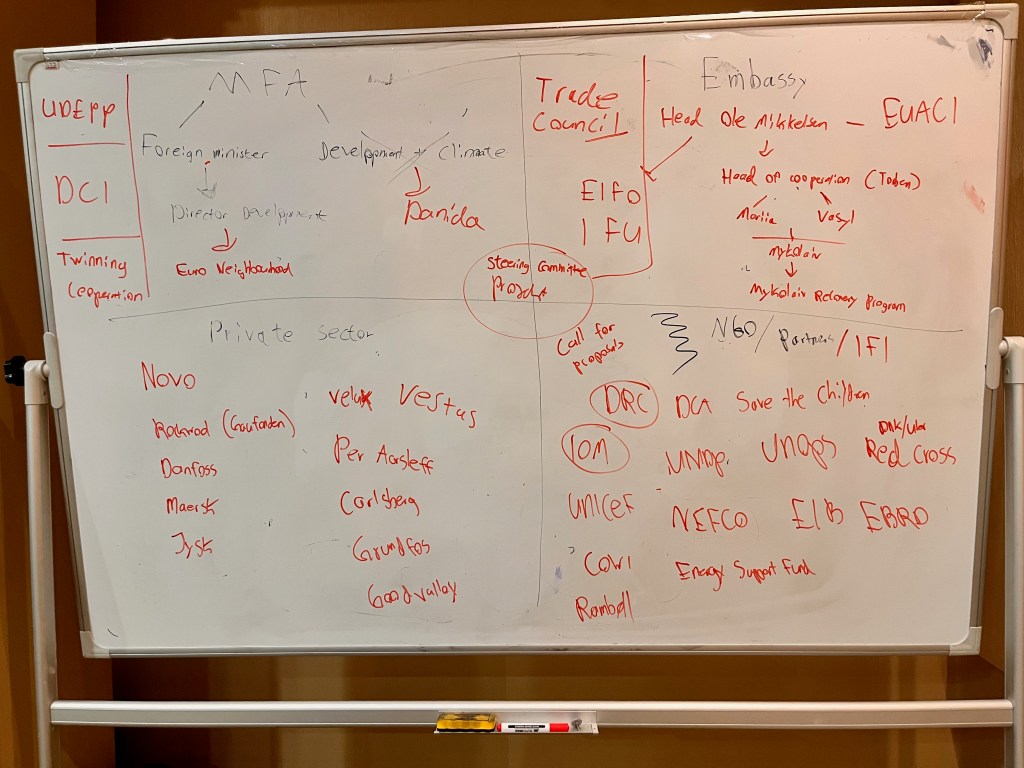 MFA
UDEPP
DCI
Twinning
Cooperation
Foreign minister
Director Development
Euro Neighbourhood
Development + Climate
Danida
Trade
Council
EIFO
IFU
Steering Committee
Embassy
Head Ole Mikkelsen — EUACI
Head of cooperation
Mariia Vasyl
Mykolaiv
Mykolaiv Recovery Program
Private sector
Novo
Danfoss
Maersk
Jysk
velux Vestas
Per Aarsleff
Carlsberg
Grundfos
Goodvalley
Call for
proposals
NGO/Partners/IFI
DRC DCA Save the Children
IOM UNDP UNOPS Red Cross
UNICEF NEFCO EIB EBRD
COWI Energy Support Fund
Ramboll